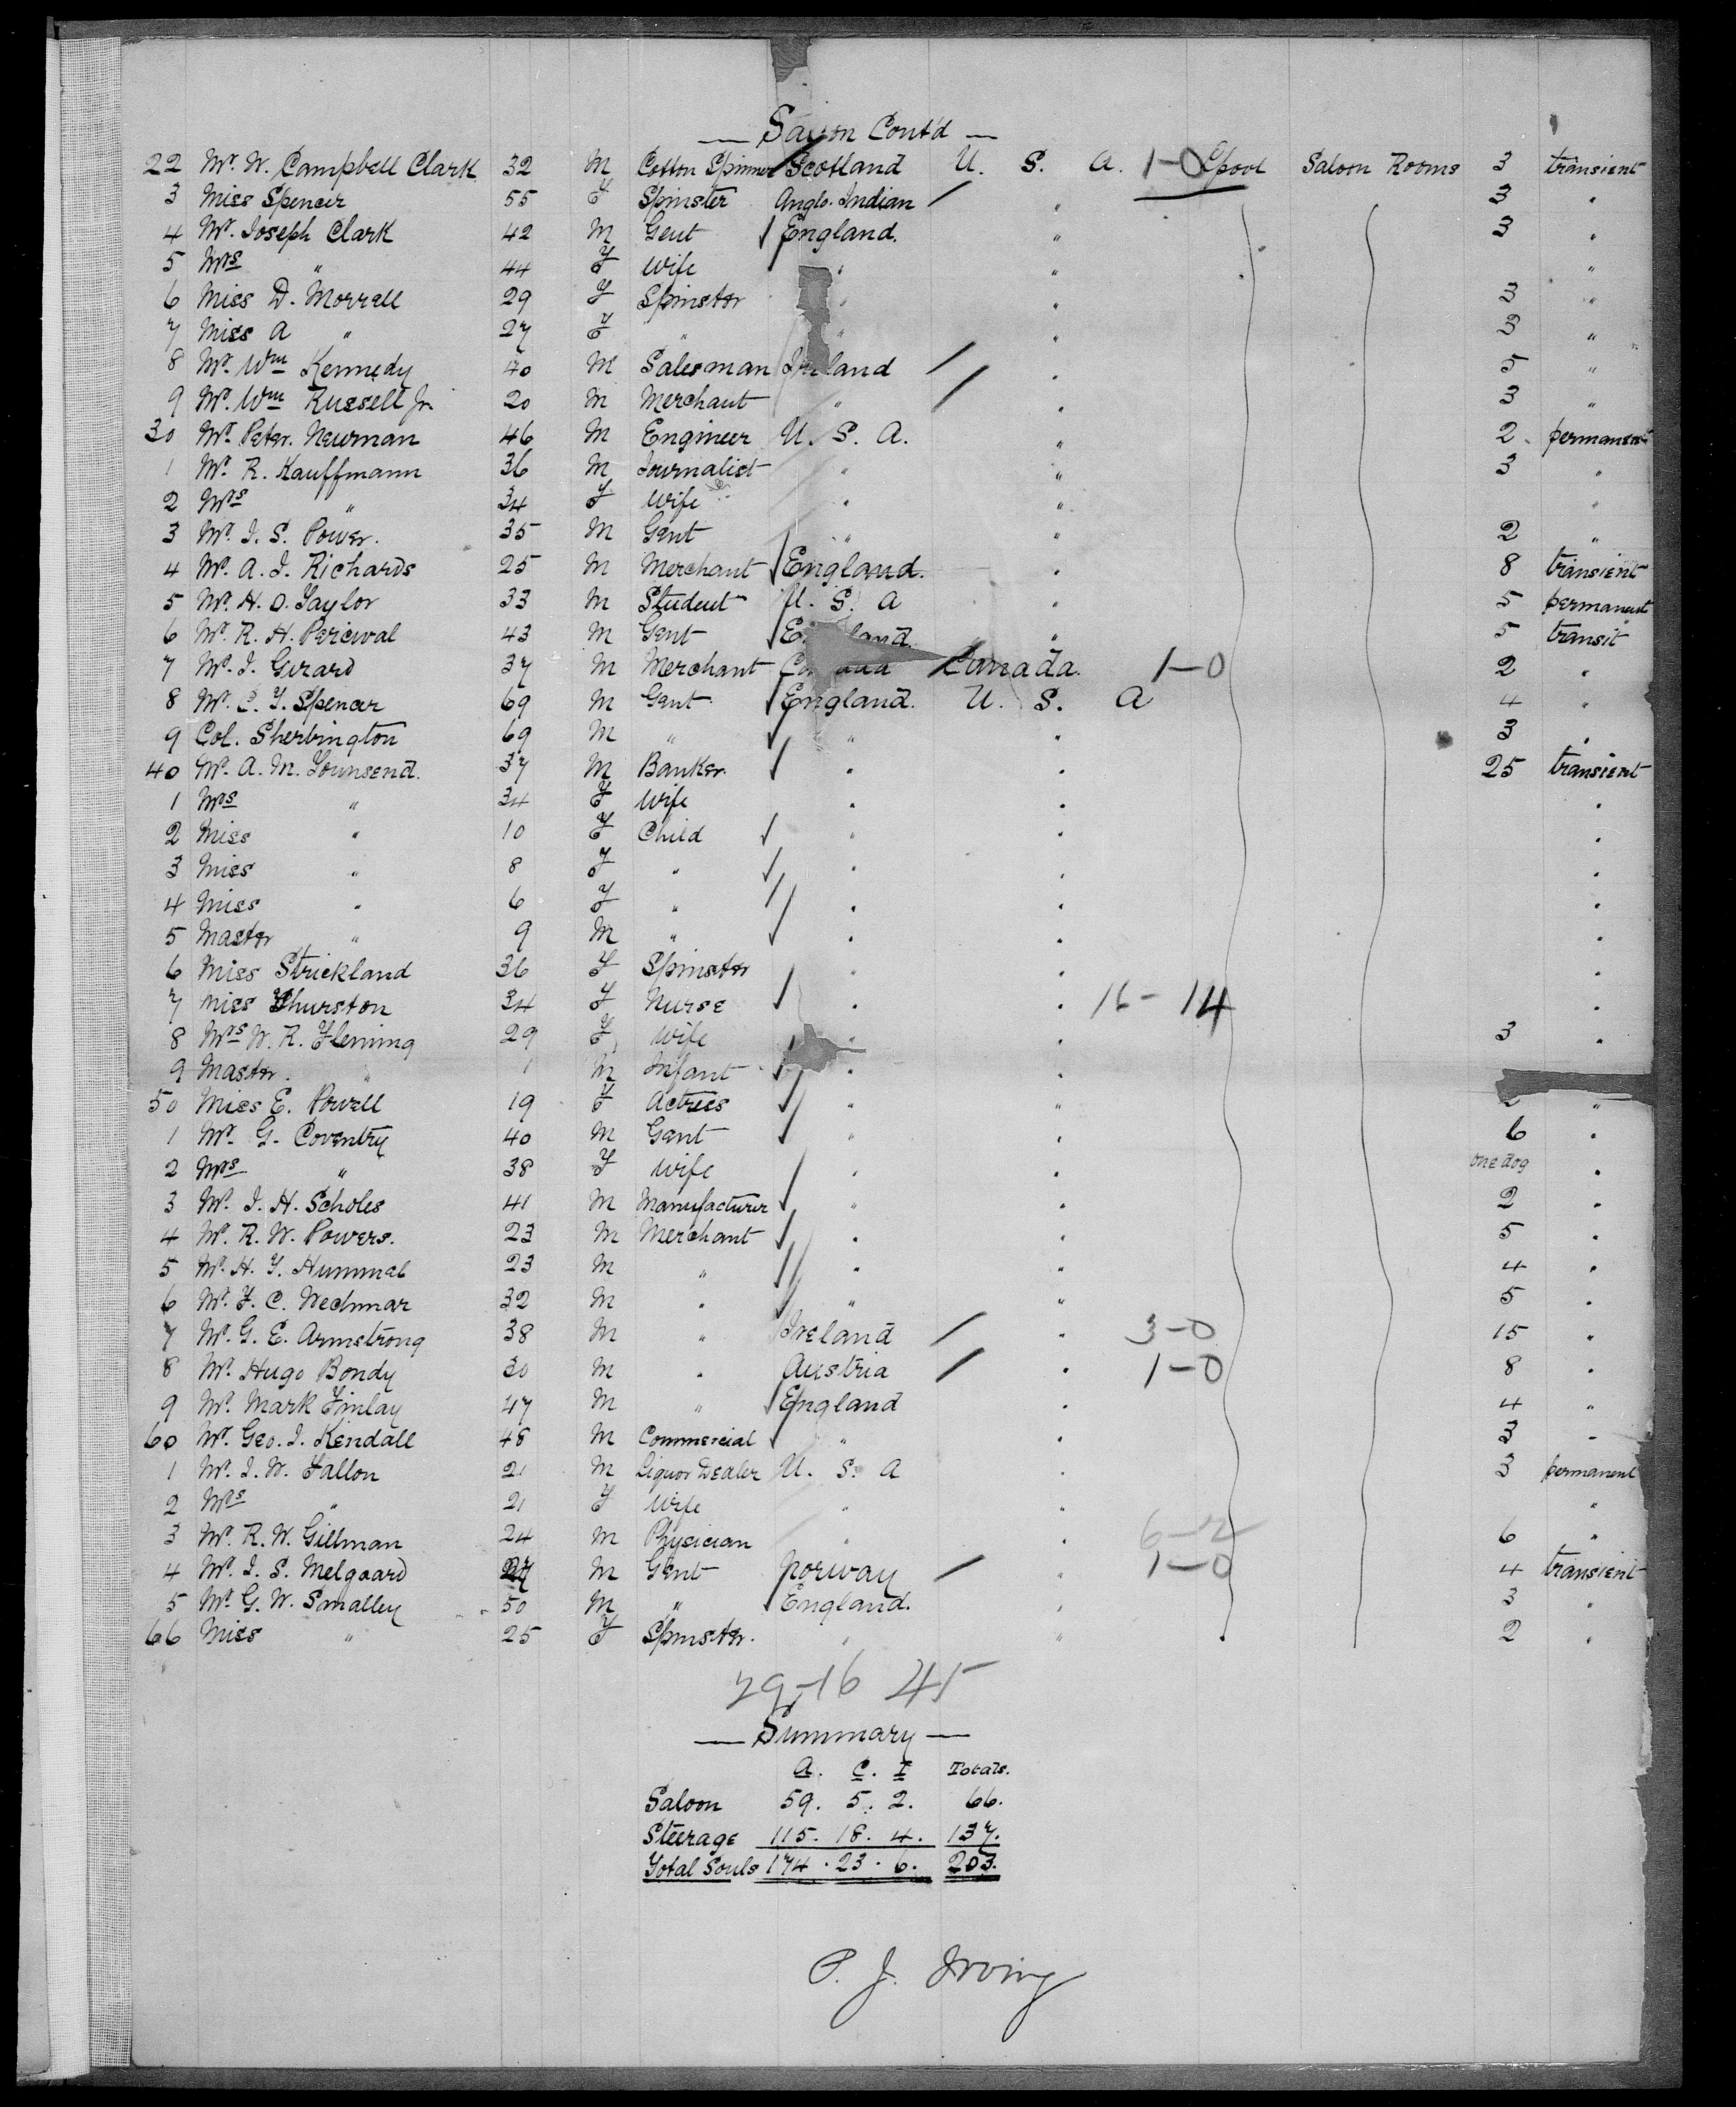 — Saloon Cont'd —
22 Mr. W. Campbell Clark 32 M Cotton Spinner Scotland U. S. A. 1-0 Lpool Saloon Rooms 3 transient
3 Miss Spencer 55 F Spinster Anglo. Indian / " 3 "
4 Mr. Joseph Clark 42 M Gent √ England. " 3 "
5 Mrs " 44 F Wife " " "
6 Miss D. Morrell 29 F Spinster " " 3 "
7 Miss A " 27 F " " " 3 "
8 Mr. Wm Kennedy 40 M Salesman Ireland / " 5 "
9 Mr. Wm Russell Jr. 20 M Merchant " / " 3 "
30 Mr. Peter. Newman 46 M Engineer U. S. A. " 2 permanent
1 Mr. R. Kauffmann 36 M Journalist " " 3 "
2 Mrs " 34 F Wife " " "
3 Mr. J. S. Power. 35 M Gent " " 2 "
4 Mr. A. J. Richards 25 M Merchant √ England. " 8 transient
5 Mr. H. O. Taylor 33 M Student U. S. A " 5 permanent
6 Mr. R. H. Percival 43 M Gent √ England. " 5 transit
7 Mr. J. Girard 37 M Merchant Canada Canada. 1-0 2 "
8 Mr. C. F. Spencer 69 M Gent √ England. U. S. A 4 "
9 Col. Sherbington 69 M " √ " " 3 "
40 Mr. A. M. Townsend. 37 M Banker. √ " " 25 transient
1 Mrs " 34 F Wife " " "
2 Miss " 10 F Child √ " " "
3 Miss " 8 F " √ " " "
4 Miss " 6 F " √ " " "
5 Master " 9 M " √ " " "
6 Miss Strickland 36 F Spinster " " "
7 Miss Thurston 34 F Nurse √ " " 16-14 "
8 Mrs W. R. Fleming 29 F Wife " " 3 "
9 Master. " 1 M Infant √ " "
50 Miss E. Powell 19 F Actress √ " " "
1 Mr. G. Coventry 40 M Gent √ " " 6 "
2 Mrs " 38 F Wife " " one dog "
3 Mr. J. H. Scholes 41 M Manufacturer √ " " 2 "
4 Mr. R. W. Powers. 23 M Merchant √ " " 5 "
5 Mr. H. F. Hummel 23 M " √ " " 4 "
6 Mr. F. C. Wechmar 32 M " √ " " 5 "
7 Mr. G. E. Armstrong 38 M " Ireland / " 3-0 15 "
8 Mr. Hugo Bondy 30 M " Austria / " 1-0 8 "
9 Mr. Mark Finlay 47 M " √ England " 4 "
60 Mr. Geo. J. Kendall 48 M Commercial √ " " 3 "
1 Mr. J. W. Fallon 21 M Liquor Dealer U. S. A " 3 permanent
2 Mrs " 21 F Wife " " "
3 Mr. R. W. Gillman 24 M Physician " " 6-2 6 "
4 Mr. J. S. Melgaard 27 M Gent Norway / " 1-0 4 transient
5 Mr. G. W. Smalley 50 M " √ England. " 3 "
66 Miss " 25 F Spinster. " " 2 "
29-16 45
— Summary —
A. C. I Totals.
Saloon 59. 5. 2. 66.
Steerage 115. 18. 4. 137.
Total Souls 174. 23. 6. 203.
P. J. Irving